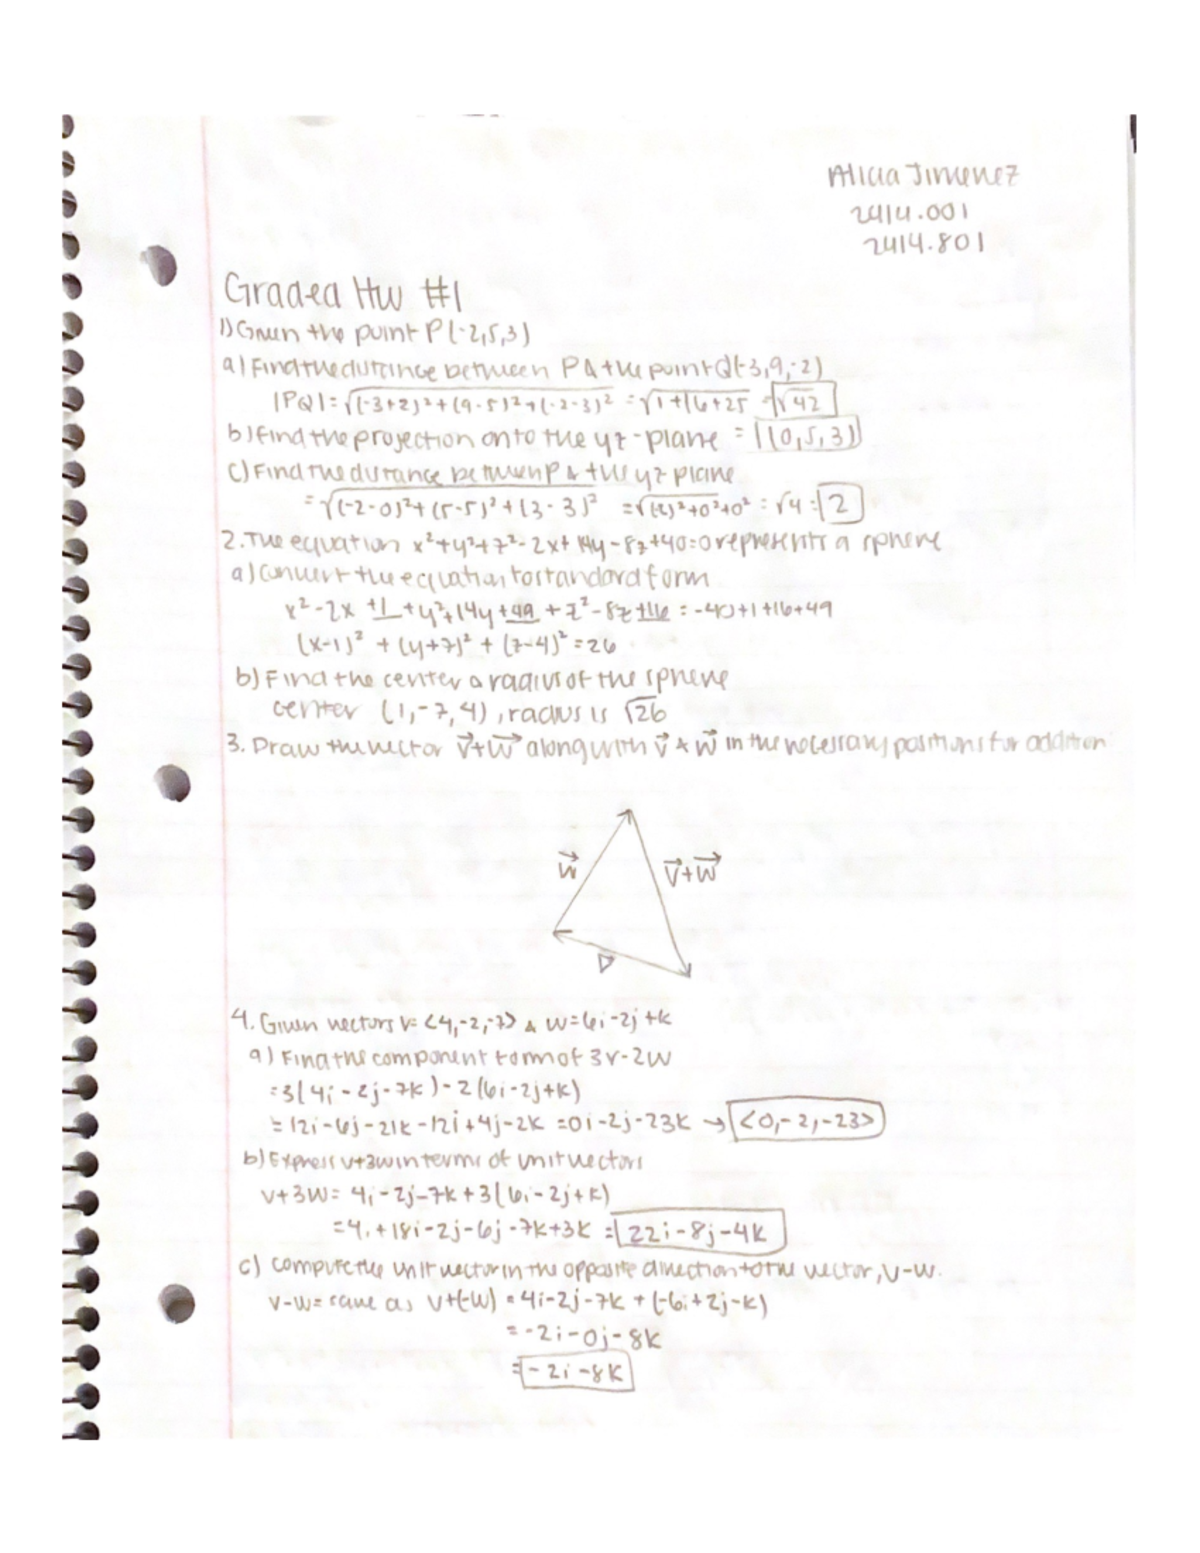 Alicia Jimenez
2414.001
2414.801
Graded HW #1
1) Given the point P(-2,5,3)
a) Find the distance between P & the point Q(-3,9,-2)
|PQ| = √(-3+2)²+(9-5)²+(-2-3)² = √1+16+25 = √42
b) Find the projection onto the yz-plane = (0,5,3)
c) Find the distance between P & the yz plane
= √(-2-0)²+(5-5)²+(3-3)² = √(-2)²+0²+0² = √4 = 2
2. The equation x²+y²+z²-2x+14y-8z+40=0 represents a sphere
a) Convert the equation to standard form
x²-2x +1 +y²+14y+49 +z²-8z+16 = -40+1+16+49
(x-1)² + (y+7)² + (z-4)² = 26
b) Find the center & radius of the sphere
center (1,-7,4), radius is √26
3. Draw the vector v⃗+w⃗ along with v⃗ & w⃗ in the necessary positions for addition
w⃗ v⃗+w⃗
v⃗
4. Given vectors v=<4,-2,-7> & w=6i-2j+k
a) Find the component form of 3v-2w
=3(4i-2j-7k)-2(6i-2j+k)
=12i-6j-21k-12i+4j-2k =0i-2j-23k → <0,-2,-23>
b) Express v+3w in terms of unit vectors
v+3w= 4i-2j-7k+3(6i-2j+k)
=4i+18i-2j-6j-7k+3k = 22i-8j-4k
c) compute the unit vector in the opposite direction to the vector, v-w.
v-w= same as v+(-w) = 4i-2j-7k+(-6i+2j-k)
= -2i-0j-8k
= -2i-8k